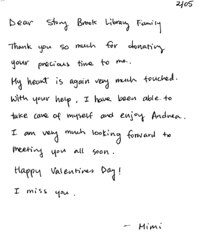 2/05
Dear Stony Brook Library Family
Thank you so much for donating
your precious time to me.
My heart is again very much touched.
With your help, I have been able to
take care of myself and enjoy Andrea.
I am very much looking forward to
meeting you all soon.
Happy Valentines Day!
I miss you.
- Mimi